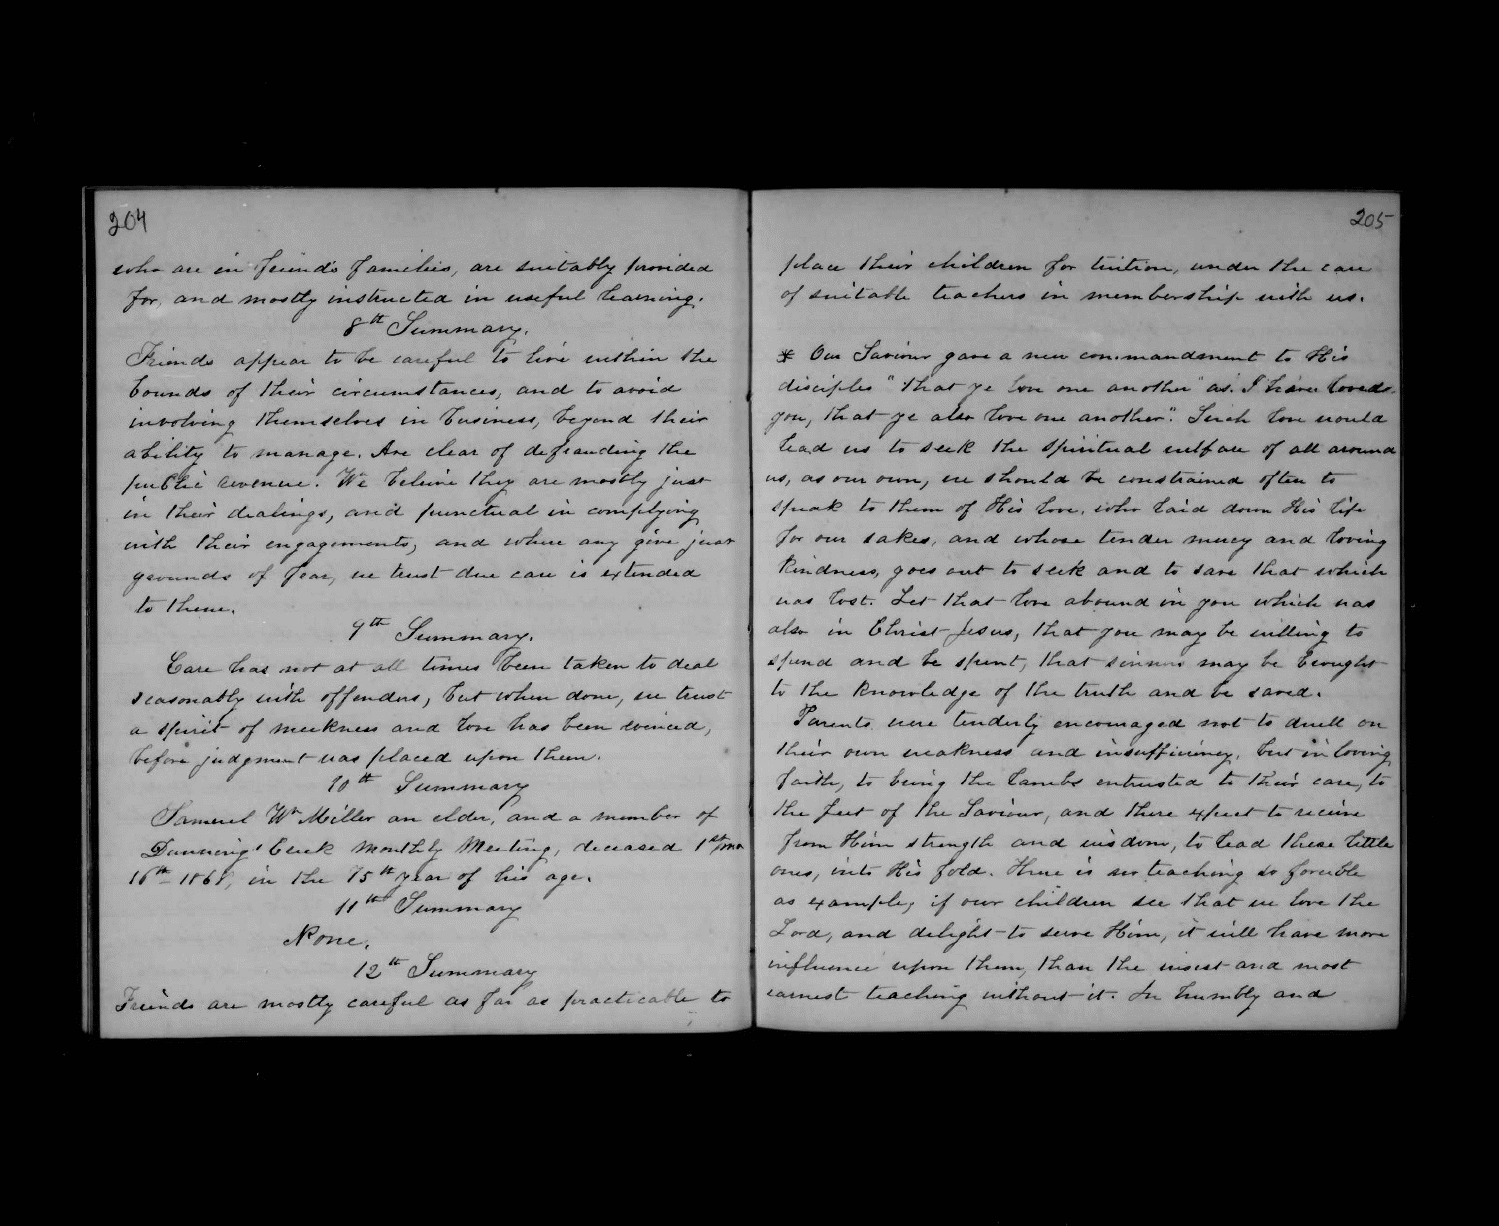 204
who are in friend's families, are suitably provided
for, and mostly instructed in useful learning.
8th Summary.
Friends appear to be careful to live within the
bounds of their circumstances, and to avoid
involving themselves in business, beyond their
ability to manage. Are clear of defrauding the
public revenue. We believe they are mostly just
in their dealings, and punctual in complying
with their engagements, and where any give just
grounds of fear, we trust due care is extended
to them.
9th Summary.
Care has not at all times been taken to deal
seasonably with offenders, but when done, we trust
a spirit of meekness and love has been evinced,
before judgment was placed upon them.
10th Summary
Samuel Wm Miller an elder, and a member of
Dunning's Creek Monthly Meeting, deceased 1st mo
16th 1868, in the 75th year of his age.
11th Summary
None.
12th Summary
Friends are mostly careful as far as practicable to
205
place their children for tuition, under the care
of suitable teachers in membership with us.
* Our Saviour gave a new commandment to His
disciples "that ye love one another" as I have loved
you, that ye also love one another." Such love would
lead us to seek the spiritual welfare of all around
us, as our own, we should be constrained often to
speak to them of His love, who laid down His life
for our sakes, and whose tender mercy and loving
kindness, goes out to seek and to save that which
was lost. Let that love abound in you which was
also in Christ Jesus, that you may be willing to
spend and be spent, that sinners may be brought
to the knowledge of the truth and be saved.
Parents were tenderly encouraged not to dwell on
their own weakness and insufficiency, but in loving
faith, to bring the lambs entrusted to their care, to
the feet of the Saviour, and there expect to receive
from Him strength and wisdom, to lead these little
ones, into His fold. There is no teaching so forcible
as example, if our children see that we love the
Lord, and delight to serve Him, it will have more
influence upon them, than the wisest and most
earnest teaching without it. In humbly and